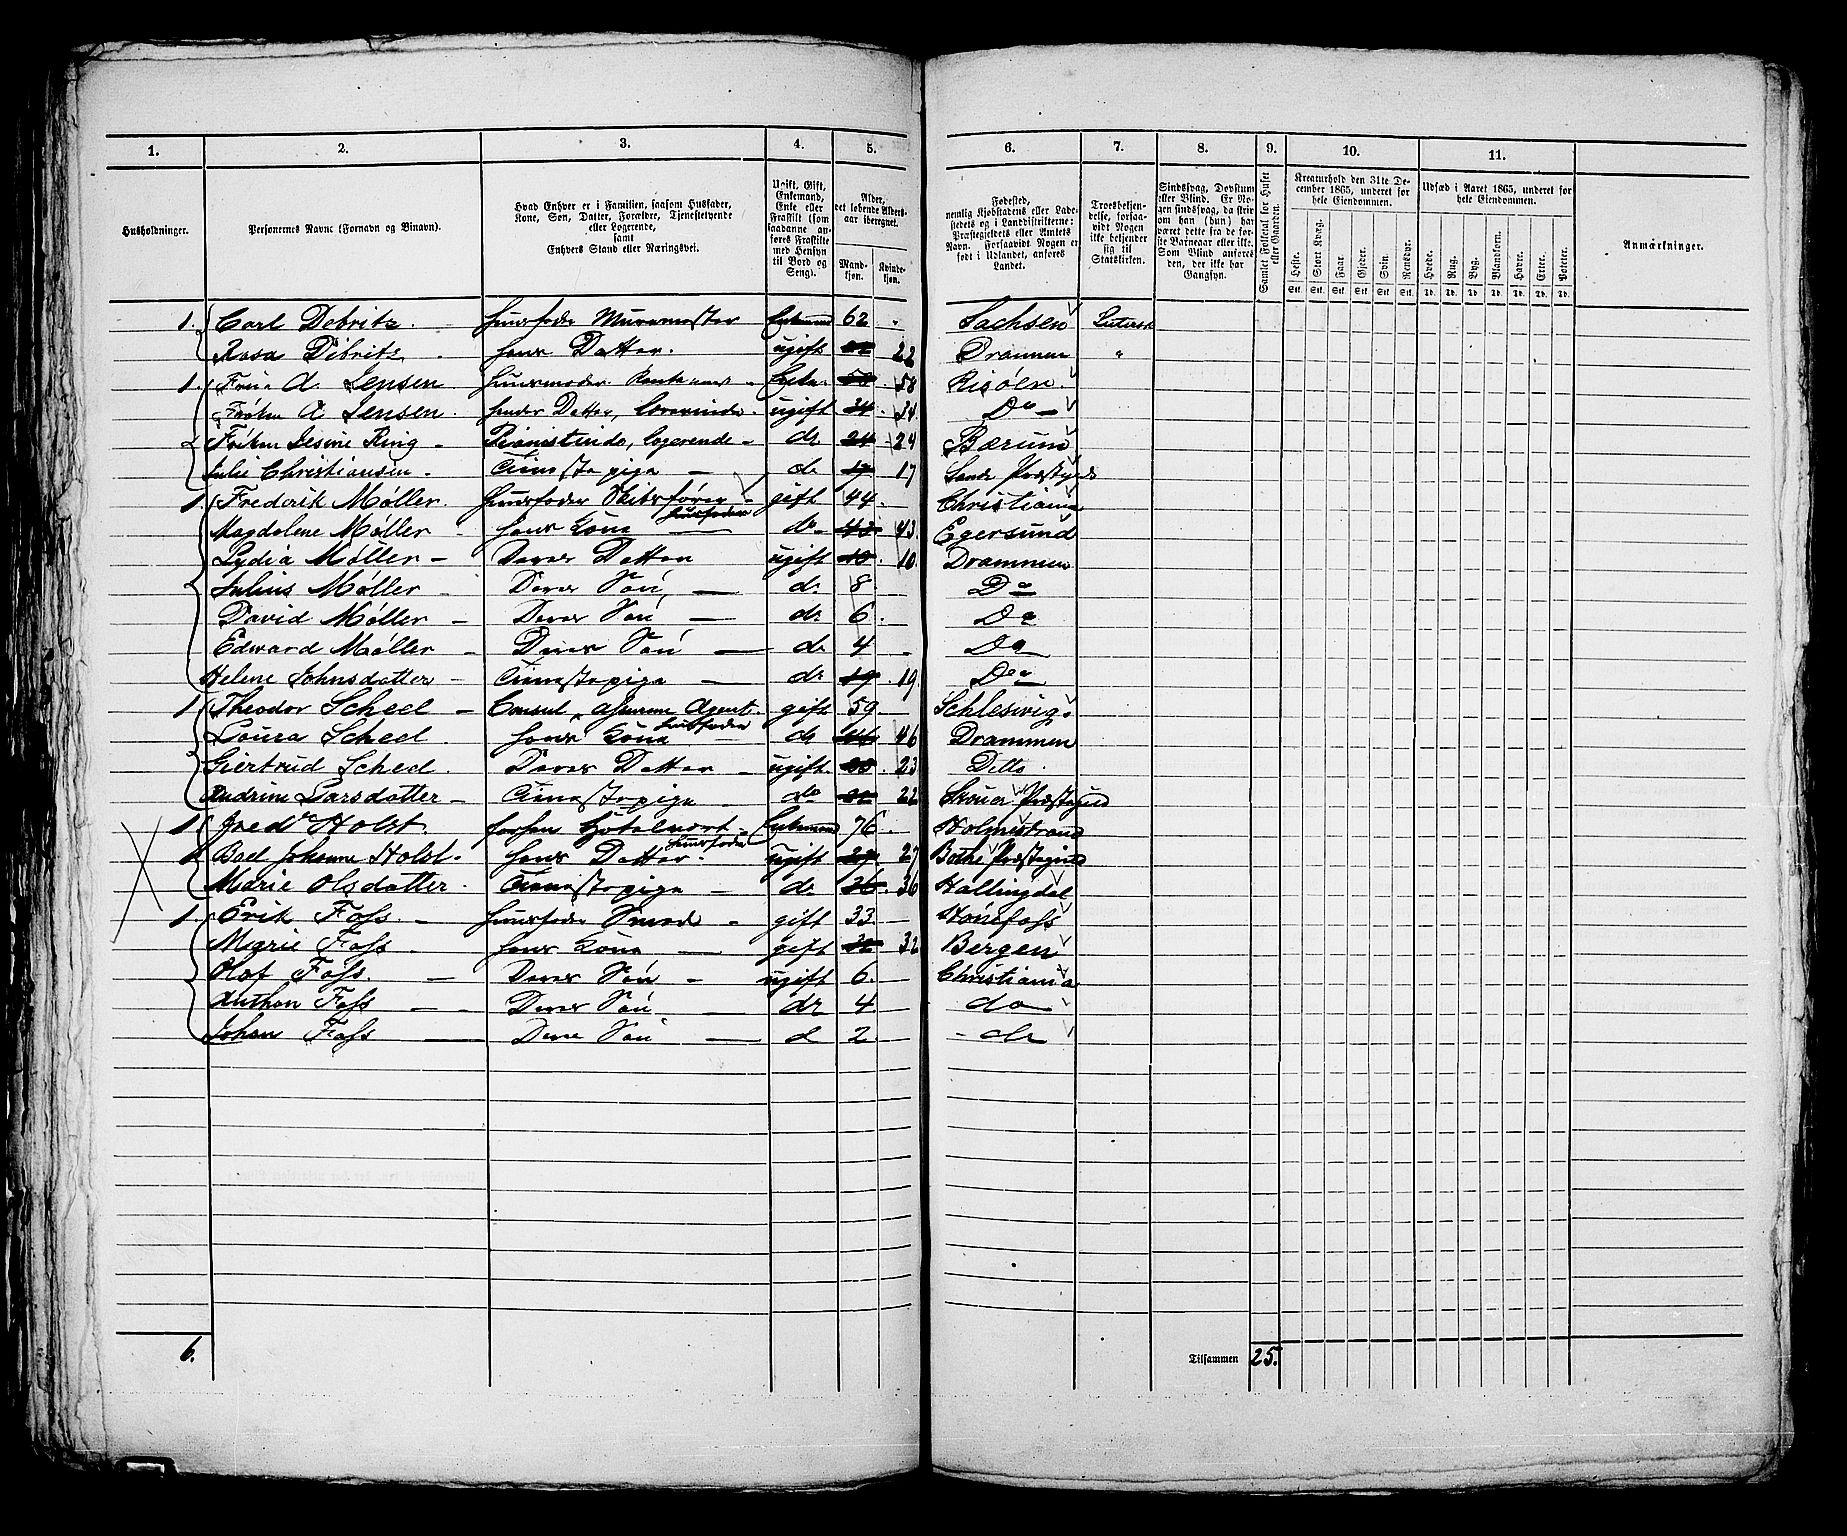 1. 2. 3. 4. 5. 6. 7. 8. 9. 10. 11.
Husholdninger.
Personernes Navne (Fornavn og Binavn).
Hvad Enhver er i Familien, saasom Husfader, Kone, Søn, Datter, Forældre, Tjenestetyende eller Logerende, samt Enhvers Stand eller Næringsvei.
Ugift, Gift, Enkemand, Enke eller Fraskilt (som saadanne anføres Fraskilte med Hensyn til Bord og Seng).
Alder, det løbende Aldersaar iberegnet.
Mandkjøn. Kvindekjøn.
Fødested, nemlig Kjøbstadens eller Ladestedets og i Landdistrikterne: Præstegjeldets eller Amtets Navn. Forsaavidt Nogen er født i Udlandet, anføres Landet.
Troesbekjendelse, forsaavidt Nogen ikke bekjender sig til Statskirken.
Sindssvag, Døvstum eller Blind. Er Nogen sindssvag, da skriv om han (hun) har været dette fra de første Barneaar eller ikke. Som Blind anføres den, der ikke har Gangsyn.
Samlet Folketal for Huset eller Gaarden.
Kreaturhold den 31te December 1865, underet for hele Eiendommen.
Heste. Stort Kvæg. Faar. Gjeder. Svin. Rensdyr.
Stk. Stk. Stk. Stk. Stk. Stk.
Udsæd i Aaret 1865, underet for hele Eiendommen.
Hvede. Rug. Byg. Blandkorn. Havre. Erter. Poteter.
Td. Td. Td. Td. Td. Td. Td.
Anmærkninger.
1. Carl Debritz Huusfader Muurmester Enkemand 62 Sachsen Luthersk
Rosa Debritz hans Datter. ugift 22 Drammen "
1. Frue A. Jensen Huusmoder Enke 58 Risøen
Frøken A Jensen hendes Datter, Lærerinde ugift 34 34 Do
2 Frøken Pianistinde, logerende do 24 24 Bærum
Julie Christiansen Tjenestepige do 17 17 Sande Præstegjeld
1. Frederik Møller Huusfader Skibsfører gift 44 Christiania
Magdalene Møller hans Kone Huusfader do 43 43 Egersund
Lydia Møller Deres Datter ugift 10 10 Drammen
Julius Møller Deres Søn do 8 Do
David Møller Deres Søn do 6 Do
Edward Møller Deres Søn do 4 Do
Helene Johnsdatter Tjenestepige do 19 19 Do
1 Theodor Scheel Consul, Agent gift 59 Schleswig
Loura Scheel hans Kone Huusfader do 46 46 Drammen
Giertrud Scheel Deres Datter ugift 23 Detto
Andrine Larsdatter Tjenestepige do 22 Skouer Præstegjeld
1 Fredr Holst forhen Enkemand 76 Holmestrand
Boel Johanne Holst hans Datter Huusfader ugift 27 Præstegjeld
Marie Olsdatter Tjenestepige do 36 36 Hallingdal
1. Erik Foss Huusfader Smed gift 33 Hønefoss
Marie Foss hans Kone gift 32 32 Bergen
Olaf Foss Deres Søn ugift 6 Christiania
Anthon Foss Deres Søn do 4 do
Johan Foss Dere Søn d 2 do
6. Tilsammen 25.